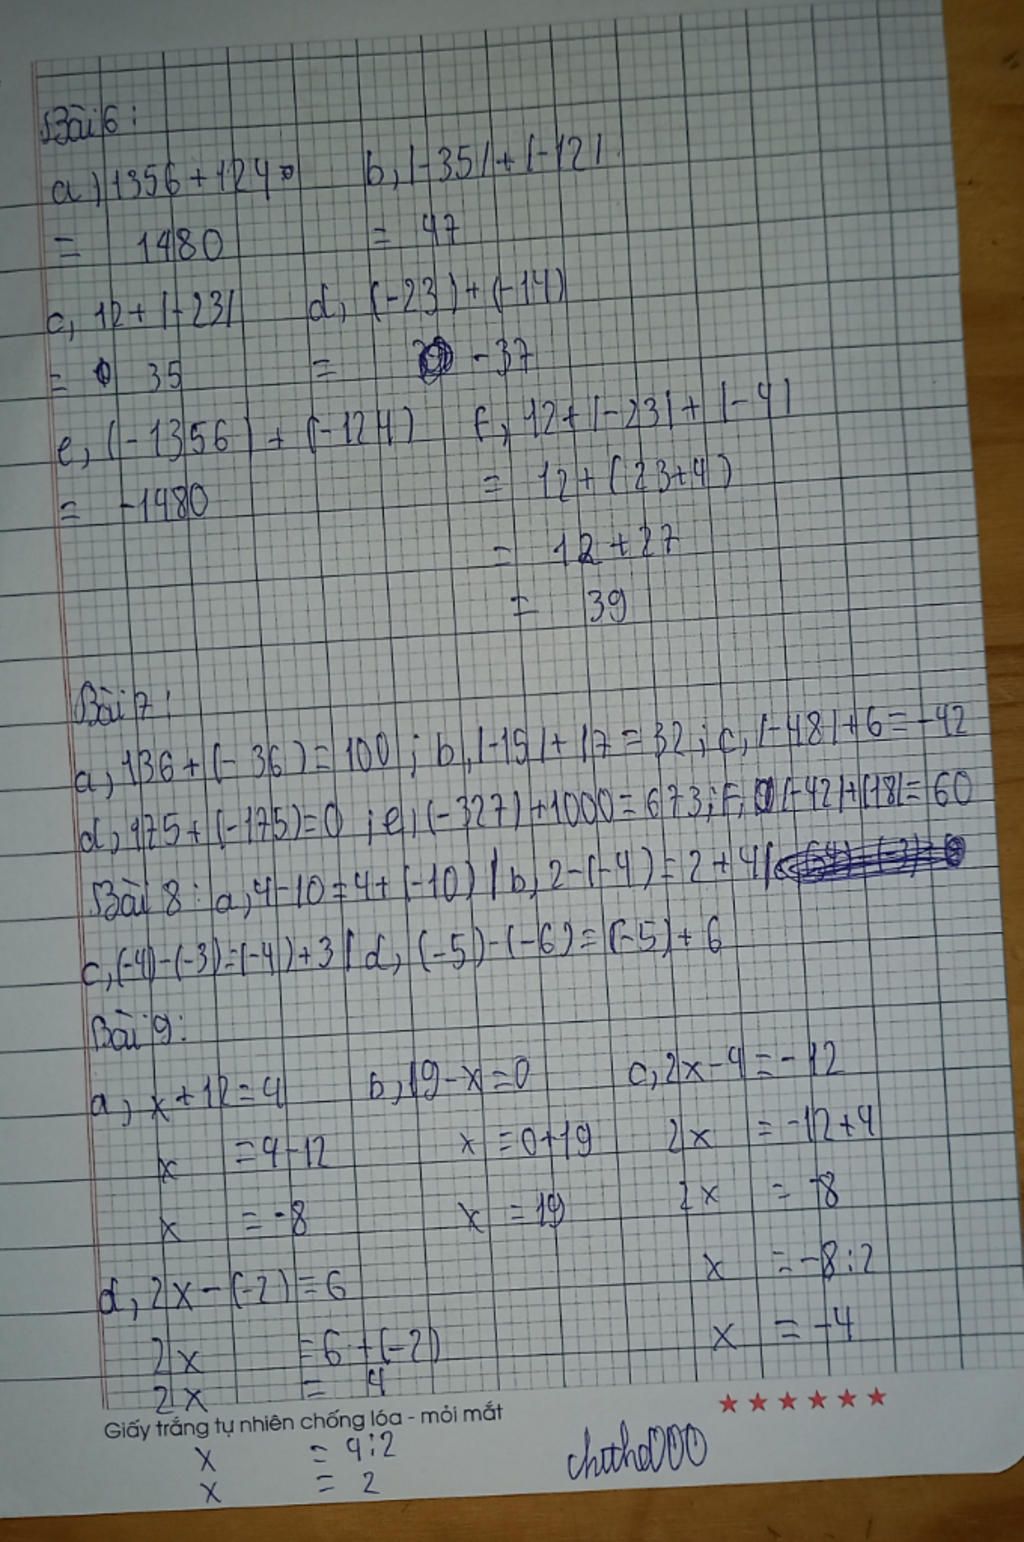 Bài 6:
a) 1356 + 124 b, |-35| + |-12|
= 1480 = 47
c, 12 + |-23| d, (-23) + (-14)
= 35 = -37
e, (-1356) + (-124) f, 12 + |-23| + |-4|
= -1480 = 12 + (23+4)
= 12 + 27
= 39
Bài 7:
a, 136 + (-36) = 100; b, |-15| + 17 = 32; c, (-48) + 6 = -42
d, 175 + (-175) = 0; e, (-327) + 1000 = 673; f, |-42| + |18| = 60
Bài 8: a, 4-10 = 4 + (-10) | b, 2-(-4) = 2 + 4 |
c, (-4)-(-3) = (-4) + 3 | d, (-5)-(-6) = (-5) + 6
Bài 9:
a, x + 12 = 4 b, 19 - x = 0 c, 2x - 4 = -12
x = 4 - 12 x = 0 + 19 2x = -12 + 4
x = -8 x = 19 2x = -8
d, 2x - (-2) = 6 x = -8 : 2
2x = 6 + (-2) x = -4
2x = 4
Giấy trắng tự nhiên chống lóa - mỏi mắt ★★★★★★
x = 4 : 2
x = 2